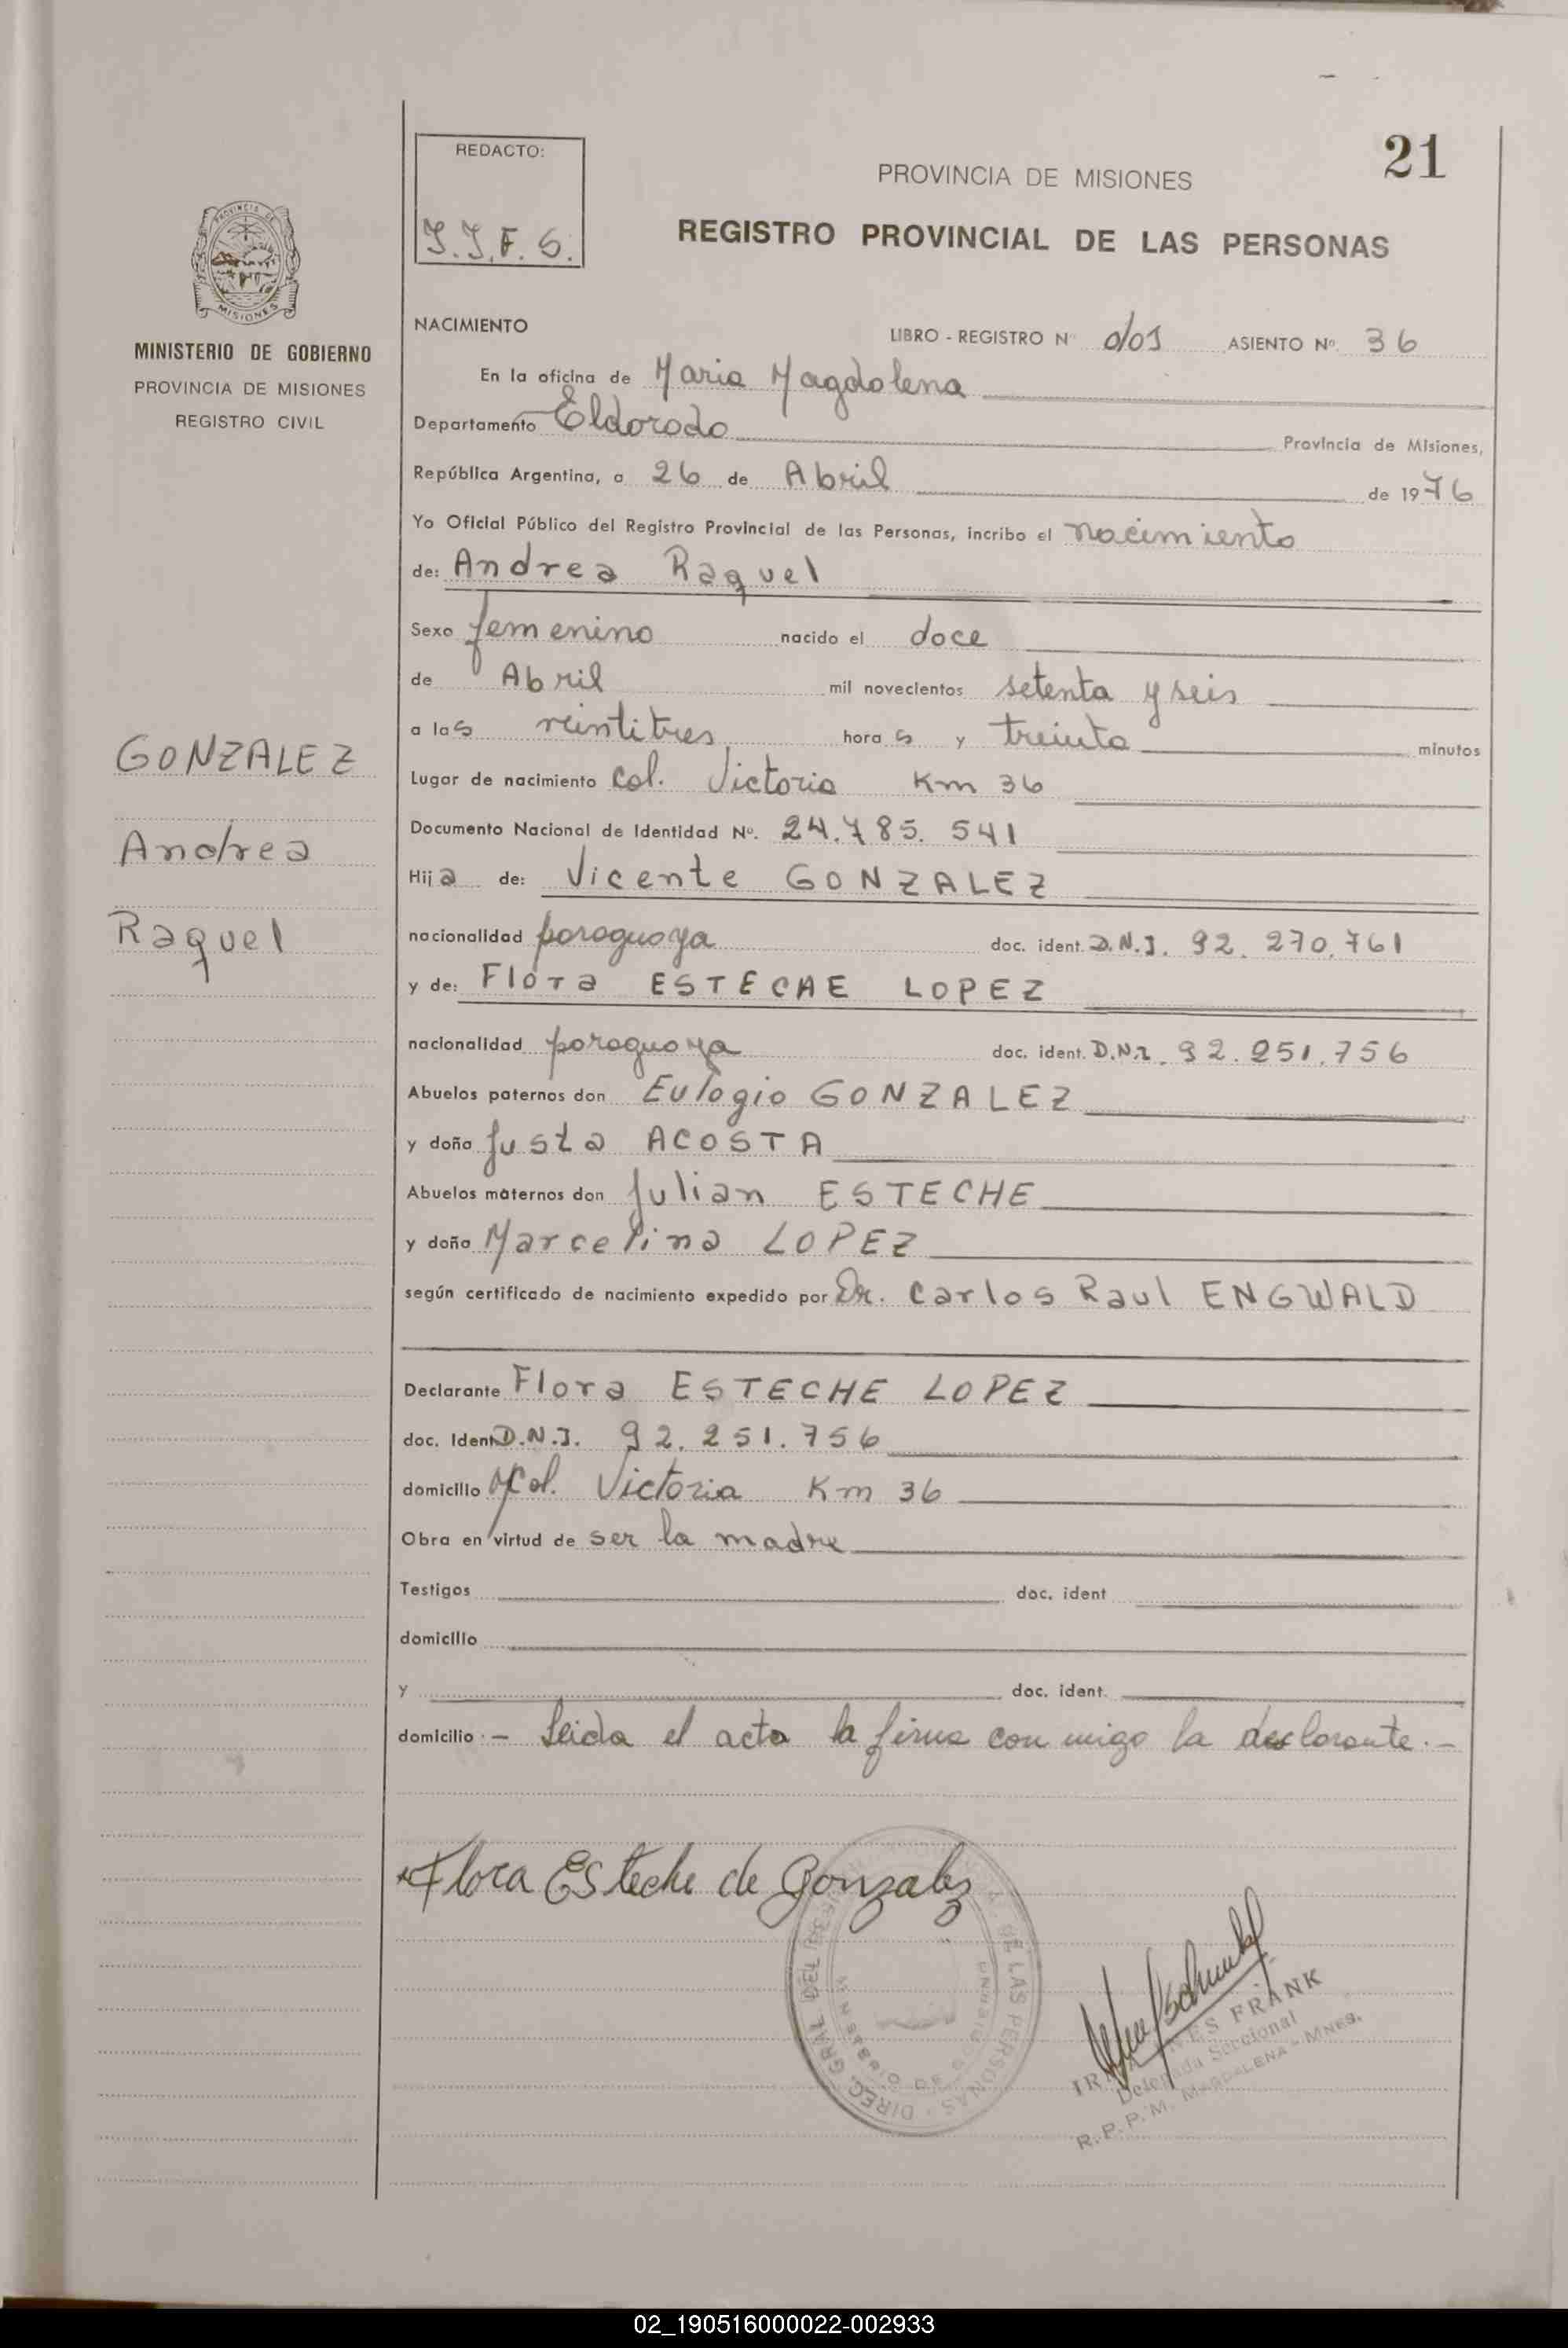 21
REDACTO:
PROVINCIA DE MISIONES
REGISTRO PROVINCIAL DE LAS PERSONAS
MISIONES
MINISTERIO DE GOBIERNO
PROVINCIA DE MISIONES
REGISTRO CIVIL
NACIMIENTO
LIBRO - REGISTRO Nº ASIENTO Nº. 36
En la oficina de Maria Magdalena
Departamento Eldorado Provincia de Misiones,
República Argentina, a 26 de Abril de 1976
Yo Oficial Público del Registro Provincial de las Personas, incribo el nacimiento
de: Andrea Raquel
Sexo femenino nacido el doce
de Abril mil novecientos setenta y seis
a las veintitres horas y treinta minutos
Lugar de nacimiento Col. Victoria Km 36
Documento Nacional de Identidad Nº. 24.785.541
Hija de: Vicente GONZALEZ
nacionalidad paraguaya doc. ident. D.N.I. 92.270.761
y de: Flora ESTECHE LOPEZ
nacionalidad paraguaya doc. ident. D.N.I. 92.251.756
Abuelos paternos don Eulogio GONZALEZ
y doña Justa ACOSTA
Abuelos maternos don Julian ESTECHE
y doña Marcelina LOPEZ
según certificado de nacimiento expedido por Dr. Carlos Raul ENGWALD
Declarante Flora ESTECHE LOPEZ
doc. Ident D.N.I. 92.251.756
domicilio Col. Victoria Km 36
Obra en virtud de ser la madre
Testigos doc. ident
domicilio
y doc. ident.
domicilio .- Leida el acta la firma con migo la declarante.-
GONZALEZ
Andrea
Raquel
Flora Esteche de Gonzalez
DIREC. GRAL DEL DE LAS PERSONAS
FRANK
Delegada Seccional
R.P.P.M. MAGDALENA - MNES.
02_190516000022-002933